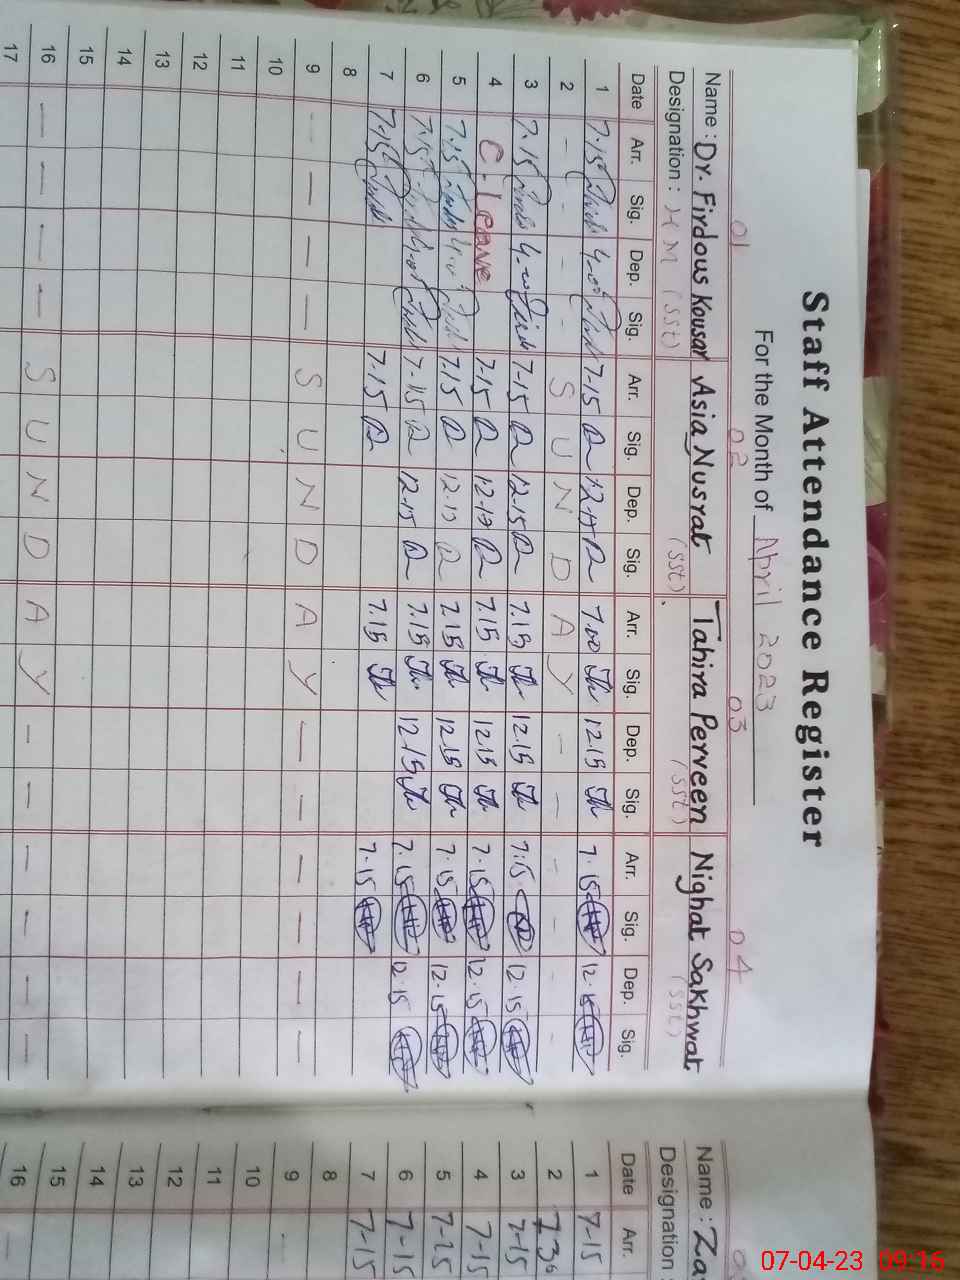 Staff Attendance Register
For the Month of April 2023
01 02 03 04
Name : Dr. Firdous Kousar Asia Nusrat Tahira Perveen Nighat Sakhwat
Designation : H M (SST) (SST) (SST) (SST)
Date Arr. Sig. Dep. Sig. Arr. Sig. Dep. Sig. Arr. Sig. Dep. Sig. Arr. Sig. Dep. Sig.
1 7.15 4-00 7-15 12-15 7.00 12.15 7.15 12.15
2 - - - - S U N D A Y - - - - - -
3 7.15 4-00 7-15 12-15 7.15 12.15 7:15 12.15
4 C-Leave 7-15 12-15 7.15 12.15 7.15 12.15
5 7.15 4-0 7.15 12-15 7.15 12.15 7.15 12.15
6 7.15 4-0 7-15 12-15 7.15 12.15 7.15 12.15
7 7-15 7-15 7.15 7.15
8
9 - - - - S U N D A Y - - - - - -
10
11
12
13
14
15
16 - - - - S U N D A Y - - - - - -
17
Name : Za
Designation :
Date Arr.
1 7-15
2 7-30
3 7-15
4 7-15
5 7-15
6 7-15
7 7-15
8
9
10
11
12
13
14
15
16
07-04-23 09:16